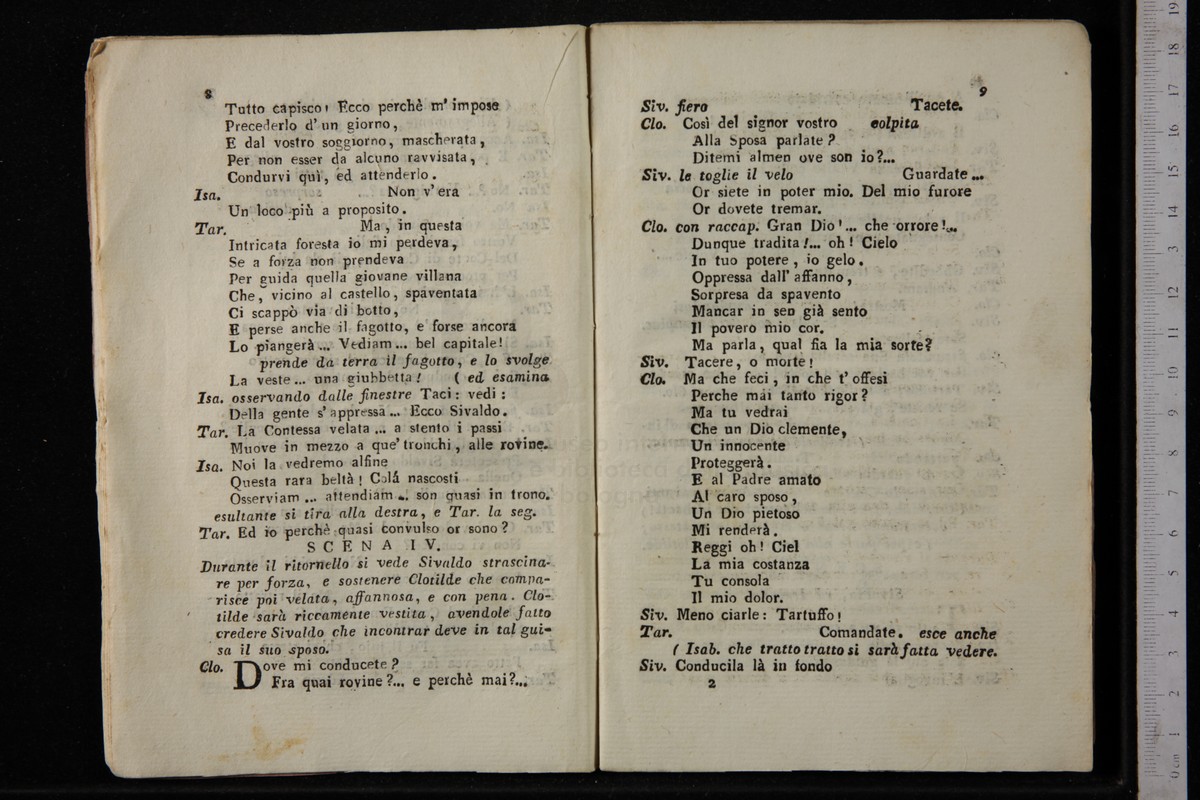 8
Tutto capisco! Ecco perchè m' impose
Precederlo d' un giorno,
E dal vostro soggiorno, mascherata,
Per non esser da alcuno ravvisata,
Condurvi quì, ed attenderlo.
Isa. Non v' era
Un loco più a proposito.
Tar. Ma, in questa
Intricata foresta io mi perdeva,
Se a forza non prendeva
Per guida quella giovane villana
Che, vicino al castello, spaventata
Ci scappò via di botto,
E perse anche il fagotto, e forse ancora
Lo piangerà... Vediam... bel capitale!
prende da terra il fagotto, e lo svolge
La veste... una giubbetta! ( ed esamina
Isa. osservando dalle finestre Taci: vedi:
Della gente s' appressa... Ecco Sivaldo.
Tar. La Contessa velata... a stento i passi
Muove in mezzo a que' tronchi, alle rovine.
Isa. Noi la vedremo alfine
Questa rara beltà! Colá nascosti
Osserviam... attendiam... son quasi in trono.
esultante si tira alla destra, e Tar. la seg.
Tar. Ed io perchè quasi convulso or sono?
SCENA IV.
Durante il ritornello si vede Sivaldo strascina-
re per forza, e sostenere Clotilde che compa-
risce poi velata, affannosa, e con pena. Clo-
tilde sarà riccamente vestita, avendole fatto
credere Sivaldo che incontrar deve in tal gui-
sa il suo sposo.
Clo. Dove mi conducete?
Fra quai rovine?... e perchè mai?...
9
Siv. fiero Tacete.
Clo. Così del signor vostro colpita
Alla Sposa parlate?
Ditemi almen ove son io?...
Siv. le toglie il velo Guardate...
Or siete in poter mio. Del mio furore
Or dovete tremar.
Clo. con raccap. Gran Dio!... che orrore!...
Dunque tradita!... oh! Cielo
In tuo potere, io gelo.
Oppressa dall' affanno,
Sorpresa da spavento
Mancar in sen già sento
Il povero mio cor.
Ma parla, qual fia la mia sorte?
Siv. Tacere, o morte!
Clo. Ma che feci, in che t' offesi
Perche mai tanto rigor?
Ma tu vedrai
Che un Dio clemente,
Un innocente
Proteggerà.
E al Padre amato
Al caro sposo,
Un Dio pietoso
Mi renderà.
Reggi oh! Ciel
La mia costanza
Tu consola
Il mio dolor.
Siv. Meno ciarle: Tartuffo!
Tar. Comandate. esce anche
( Isab. che tratto tratto si sarà fatta vedere.
Siv. Conducila là in fondo
2